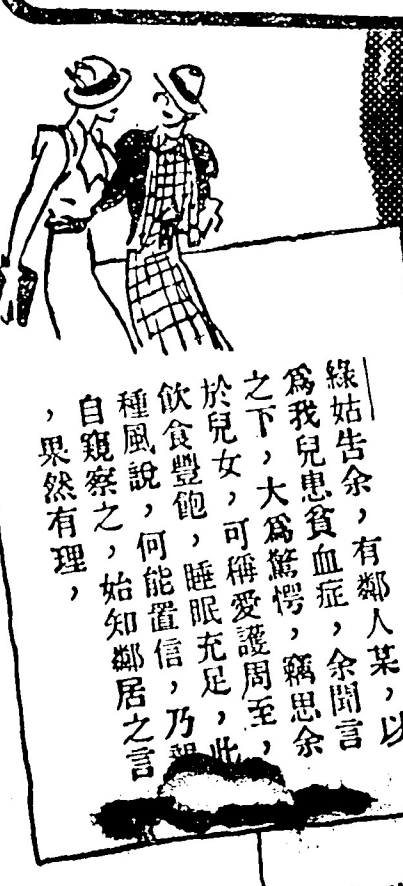 綠姑告余，有鄰人某，以
爲我兒患貧血症，余聞言
之下，大爲驚愕，竊思余
於兒女，可稱愛護周至，
飲食豐飽，睡眠充足，此
種風說，何能置信，乃親
自窺察之，始知鄰居之言
，果然有理，